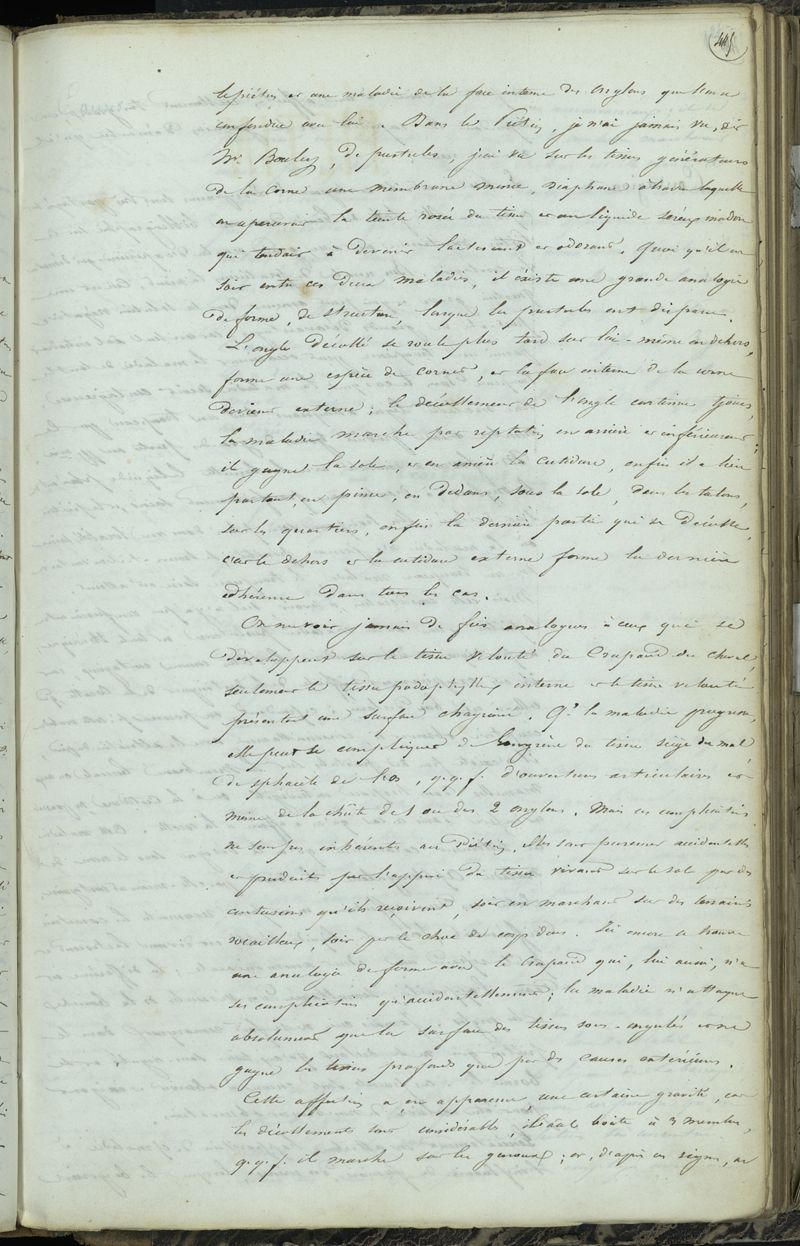 445
le piétin et une maladie de la face interne des onglons que l'on a
confondue avec lui. Dans le Piétin, je n'ai jamais vu, dit
Mr Bouley, de pustules; j'ai vu sur les tissus générateurs
de la corne une membrane mince, diaphane à travers laquelle
on apercevait la teinte rosée du tissu et un liquide séreux inodore
qui tendait à devenir lactescent et odorant. Quoi qu'il en
soit entre ces deux maladies, il existe une grande analogie
de forme, de structure, lorsque les pustules ont disparu.
L'ongle décollé se roule plus tard sur lui-même en dehors,
forme une espèce de cornet, et la face interne de la corne
devient externe; le décollement de l'ongle continue tjours,
la maladie marche par reptation en arrière et inférieurement;
il gagne la sole, et en arrière la cutidure, enfin il a lieu
partout, en pince, en dedans, sous la sole, dans les talons,
sur les quartiers, enfin la dernière partie qui se décolle,
c'est le dehors et la cutidure externe forme la dernière
adhérence dans tous les cas.
On ne voit jamais de fics analogues à ceux qui se
développent sur le tissu velouté du Crapaud du cheval,
seulement le tissu podophylleux interne et le tissu velouté
présentent une surface chagrinée. Qd la maladie progresse,
elle peut se compliquer de Gangrène du tissu siège du mal,
de sphacèle de l'os, q.q.f. d'ouvertures articulaires et
même de la chûte de 1 ou des 2 onglons. Mais ces complications
ne sont pas inhérentes au Piétin, elles sont purement accidentelles
et produites par l'appui du tissu vivant sur le sol par des
contusions qu'ils reçoivent, soit en marchant sur des terrains
rocailleux, soit par le choc de corps durs. Ici encore se trouve
une analogie de forme avec le Crapaud qui, lui aussi, n'a
ses complications qu'accidentellement; la maladie n'attaque
absolument que la surface des tissus sous-ongulés et ne
gagne les tissus profonds que par des causes extérieures.
Cette affection a, en apparence, une certaine gravité, car
les décollements sont considérables, boite à 3 membres,
q.q.f. il marche sur les genoux; et, d'après ces signes, on